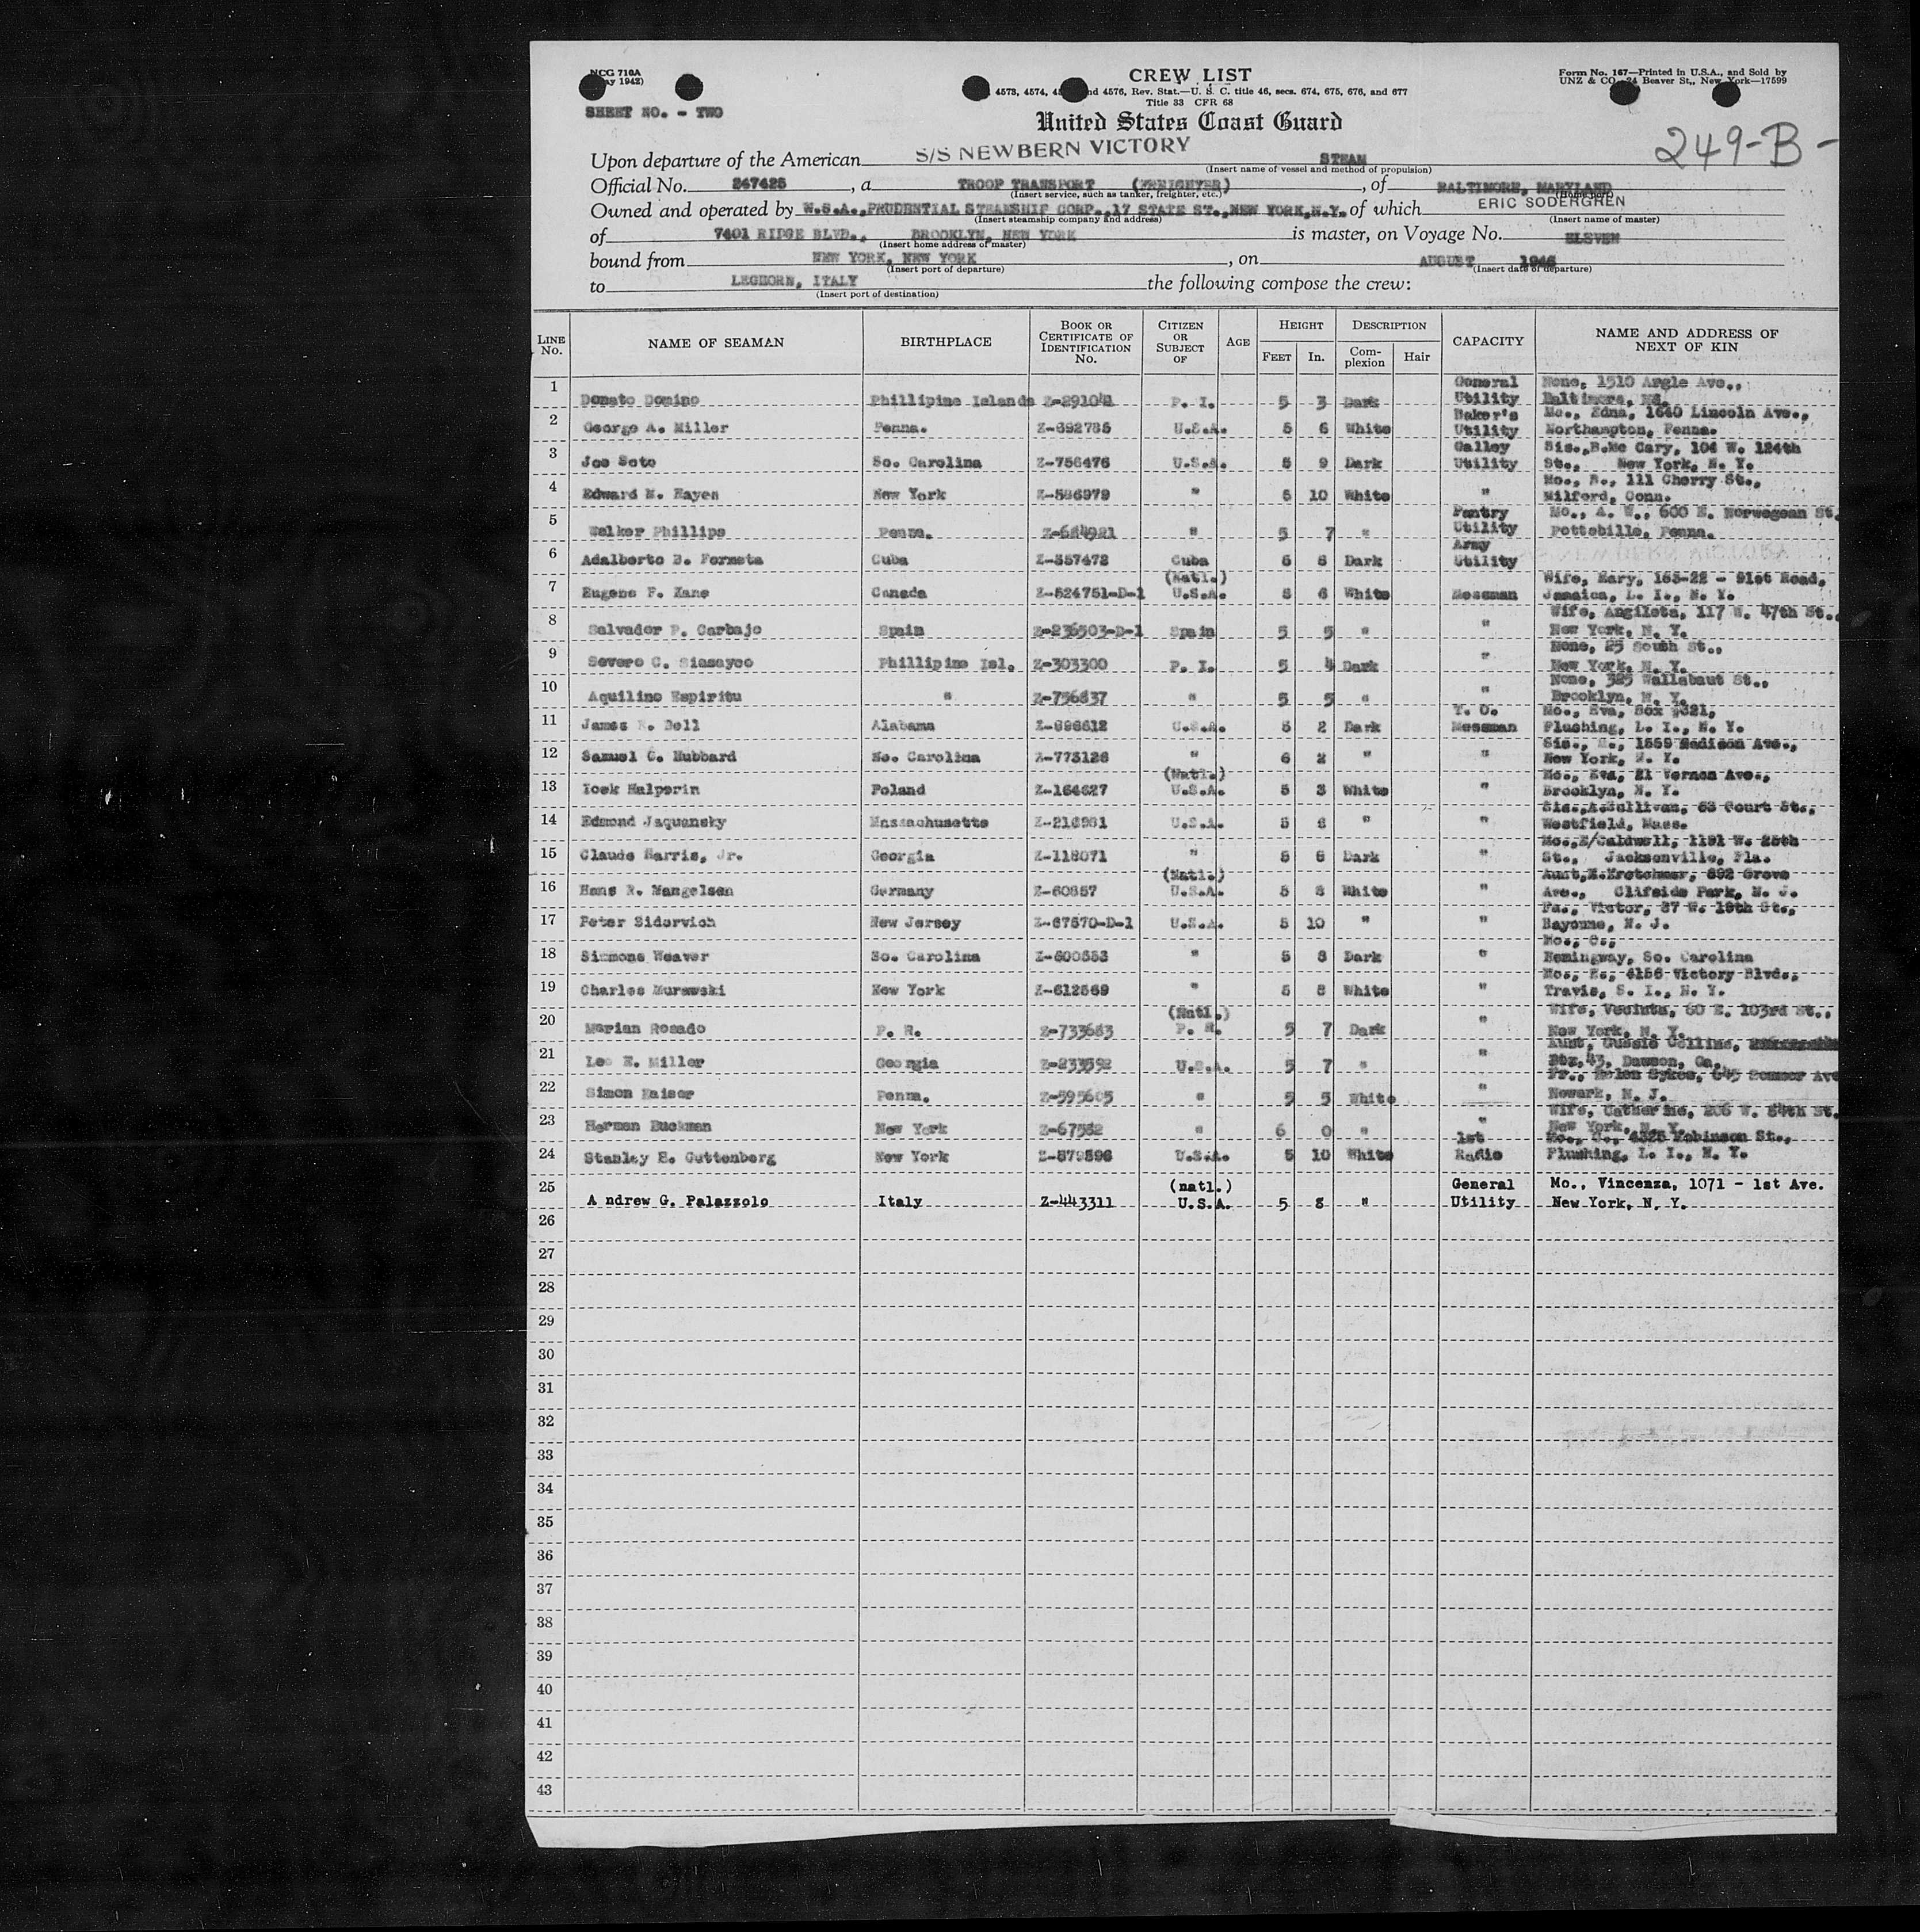 NCG 710A
SHEET NO. - TWO
CREW LIST
Form No. 167—Printed in U.S.A., and Sold by
UNZ & CO., 24 Beaver St., New York—17599
4573, 4574, and 4576, Rev. Stat.—U. S. C. title 46, secs. 674, 675, 676, and 677
Title 33 CFR 68
United States Coast Guard
249-B-
Upon departure of the American S/S NEWBERN VICTORY STEAM
(Insert name of vessel and method of propulsion)
Official No. 247425, a TROOP TRANSPORT (FREIGHTER), of BALTIMORE, MARYLAND
(Insert service, such as tanker, freighter, etc.)
Owned and operated by W.S.A., PRUDENTIAL STEAMSHIP CORP., 17 STATE ST., NEW YORK, N.Y. of which ERIC SODERGREN
(Insert steamship company and address) (Insert name of master)
of 7401 RIDGE BLVD., BROOKLYN, NEW YORK is master, on Voyage No. ELEVEN
(Insert home address of master)
bound from NEW YORK, NEW YORK, on AUGUST 1946
(Insert port of departure) (Insert date of departure)
to LEGHORN, ITALY the following compose the crew:
(Insert port of destination)
LINE No. NAME OF SEAMAN BIRTHPLACE BOOK OR CERTIFICATE OF IDENTIFICATION No. CITIZEN OR SUBJECT OF AGE HEIGHT FEET In. DESCRIPTION Complexion Hair CAPACITY NAME AND ADDRESS OF NEXT OF KIN
1 Donato Domino Phillipine Islands Z-291041 P. I. 5 3 Dark General Utility None, 1510 Argle Ave., Baltimore, Md.
2 George A. Miller Penna. Z-692785 U.S.A. 5 6 White Baker's Utility Mo., Edna, 1640 Lincoln Ave., Northampton, Penna.
3 Joe Soto So. Carolina Z-756476 U.S.A. 5 9 Dark Galley Utility Sis., B.Mc Cary, 104 W. 124th St., New York, N. Y.
4 Edward N. Hayes New York Z-586979 " 5 10 White " Mo., 111 Cherry St., Milford, Conn.
5 Walker Phillips Penna. Z-624921 " 5 7 " Pantry Utility Mo., A. W., 600 E. Norwegean St. Pottsbille, Penna.
6 Adalberto B. Formeta Cuba Z-357472 Cuba 5 6 Dark Army Utility
7 Eugene F. Kane Canada Z-524751-D-1 (Natl.) U.S.A. 5 6 White Messman Wife, Mary, 163-22 - 91st Road, Jamaica, L. I., N. Y.
8 Salvador P. Carbajo Spain Z-236503-D-1 Spain 5 5 " " Wife, Angileta, 117 W. 47th St., New York, N. Y.
9 Severo C. Siasayco Phillipine Isl. Z-303300 P. I. 5 4 Dark " None, 25 South St., New York, N. Y.
10 Aquilino Espiritu " Z-756837 " 5 5 " " None, 325 Wallabaut St., Brooklyn, N. Y.
11 James Bell Alabama Z-898612 U.S.A. 5 2 Dark T. O. Messman Mo., Eva, Box 9321, Flushing, L. I., N. Y.
12 Samuel C. Hubbard No. Carolina Z-773126 " 6 2 " " Sis., M., 1889 Madison Ave., New York, N. Y.
13 Icek Halperin Poland Z-164627 (Natl.) U.S.A. 5 3 White " Mo., Eva, 21 Vernon Ave., Brooklyn, N. Y.
14 Edmond Jaquensky Massachusetts Z-216981 U.S.A. 5 8 " " Sis., A.Sullivan, 63 Court St., Westfield, Mass.
15 Claude Harris, Jr. Georgia Z-118071 " 5 6 Dark " Mo., E/Caldwell, 1191 W. 25th St., Jacksonville, Fla.
16 Hans R. Mangelsen Germany Z-60857 (Natl.) U.S.A. 5 8 White " Aunt, E.Kretchmer, 892 Grove Ave., Clifside Park, N. J.
17 Peter Sidorvich New Jersey Z-67670-D-1 U.S.A. 5 10 " " Fa., Victor, 37 W. 19th St., Bayonne, N. J.
18 Simmons Weaver So. Carolina Z-600553 " 5 8 Dark " Mo., C., Hemingway, So. Carolina
19 Charles Murawski New York Z-612569 " 5 8 White " Mo., 4156 Victory Blvd., Travis, S. I., N. Y.
20 Marian Rosado P. R. Z-733683 (Natl.) P. R. 5 7 Dark " Wife, 60 E. 103rd St., New York, N. Y.
21 Leo E. Miller Georgia Z-233592 U.S.A. 5 7 " " Aunt, Gussie Collins, Box 43, Dawson, Ga.
22 Simon Kaiser Penna. Z-595605 " 5 5 White " Fr., Helen Sykes, Newark, N. J.
23 Herman Buckman New York Z-67582 " 6 0 " " Wife, Catherine, 206 W. 84th St. New York, N. Y.
24 Stanley E. Guttenberg New York Z-579596 U.S.A. 5 10 White 1st Radio Mo., 4325 Robinson St., Flushing, L. I., N. Y.
25 Andrew G. Palazzolo Italy Z-443311 (natl.) U.S.A. 5 8 " General Utility Mo., Vincenza, 1071 - 1st Ave. New York, N. Y.
26
27
28
29
30
31
32
33
34
35
36
37
38
39
40
41
42
43